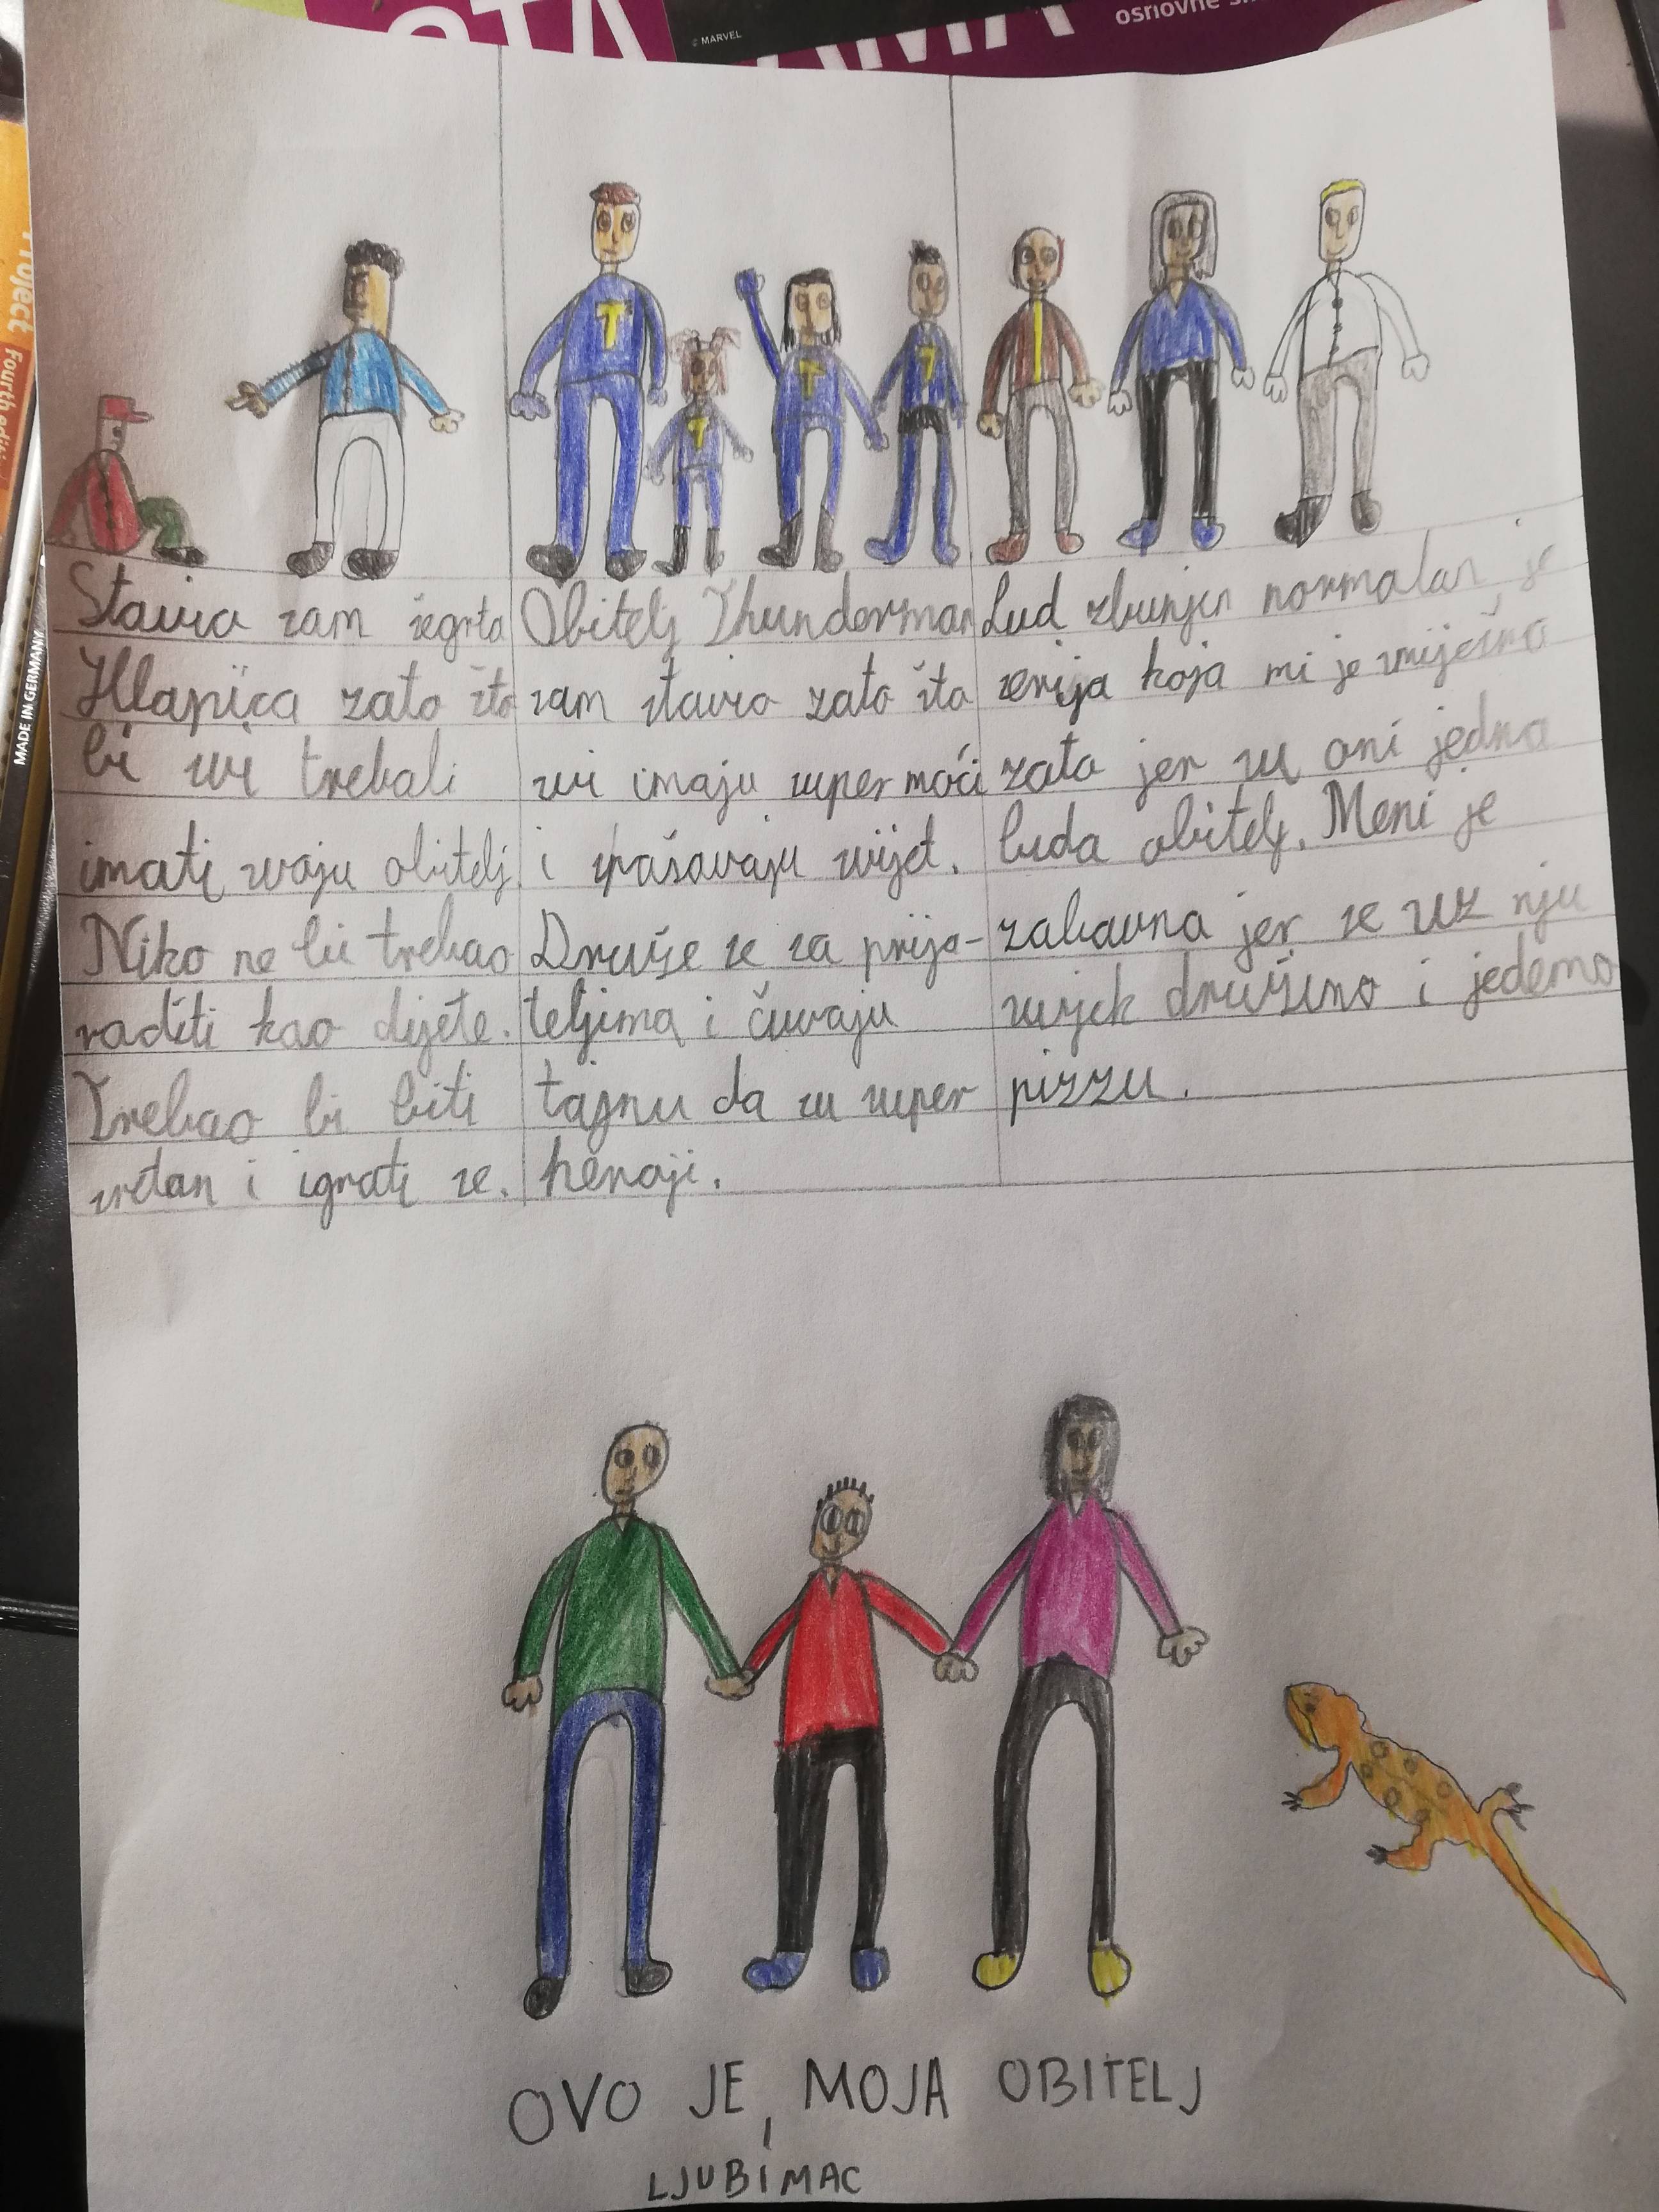 © MARVEL
osnovne
Project
Fourth
MADE IN GERMANY
Stavio sam šegrta
Hlapića zato što
bi svi trebali
imati svoju obitelj.
Niko ne bi trebao
raditi kao dijete.
Trebao bi biti
sretan i igrati se.
Obitelj Thunderman
sam stavio zato što
svi imaju super moći
i spašavaju svijet.
Druže se sa prija-
teljima i čuvaju
tajnu da su super
heroji.
Lud zbunjen normalan, je
serija koja mi je smiješna
zato jer su oni jedna
luda obitelj. Meni je
zabavna jer se uz nju
uvijek družimo i jedemo
pizzu.
OVO JE, MOJA OBITELJ
I
LJUBIMAC